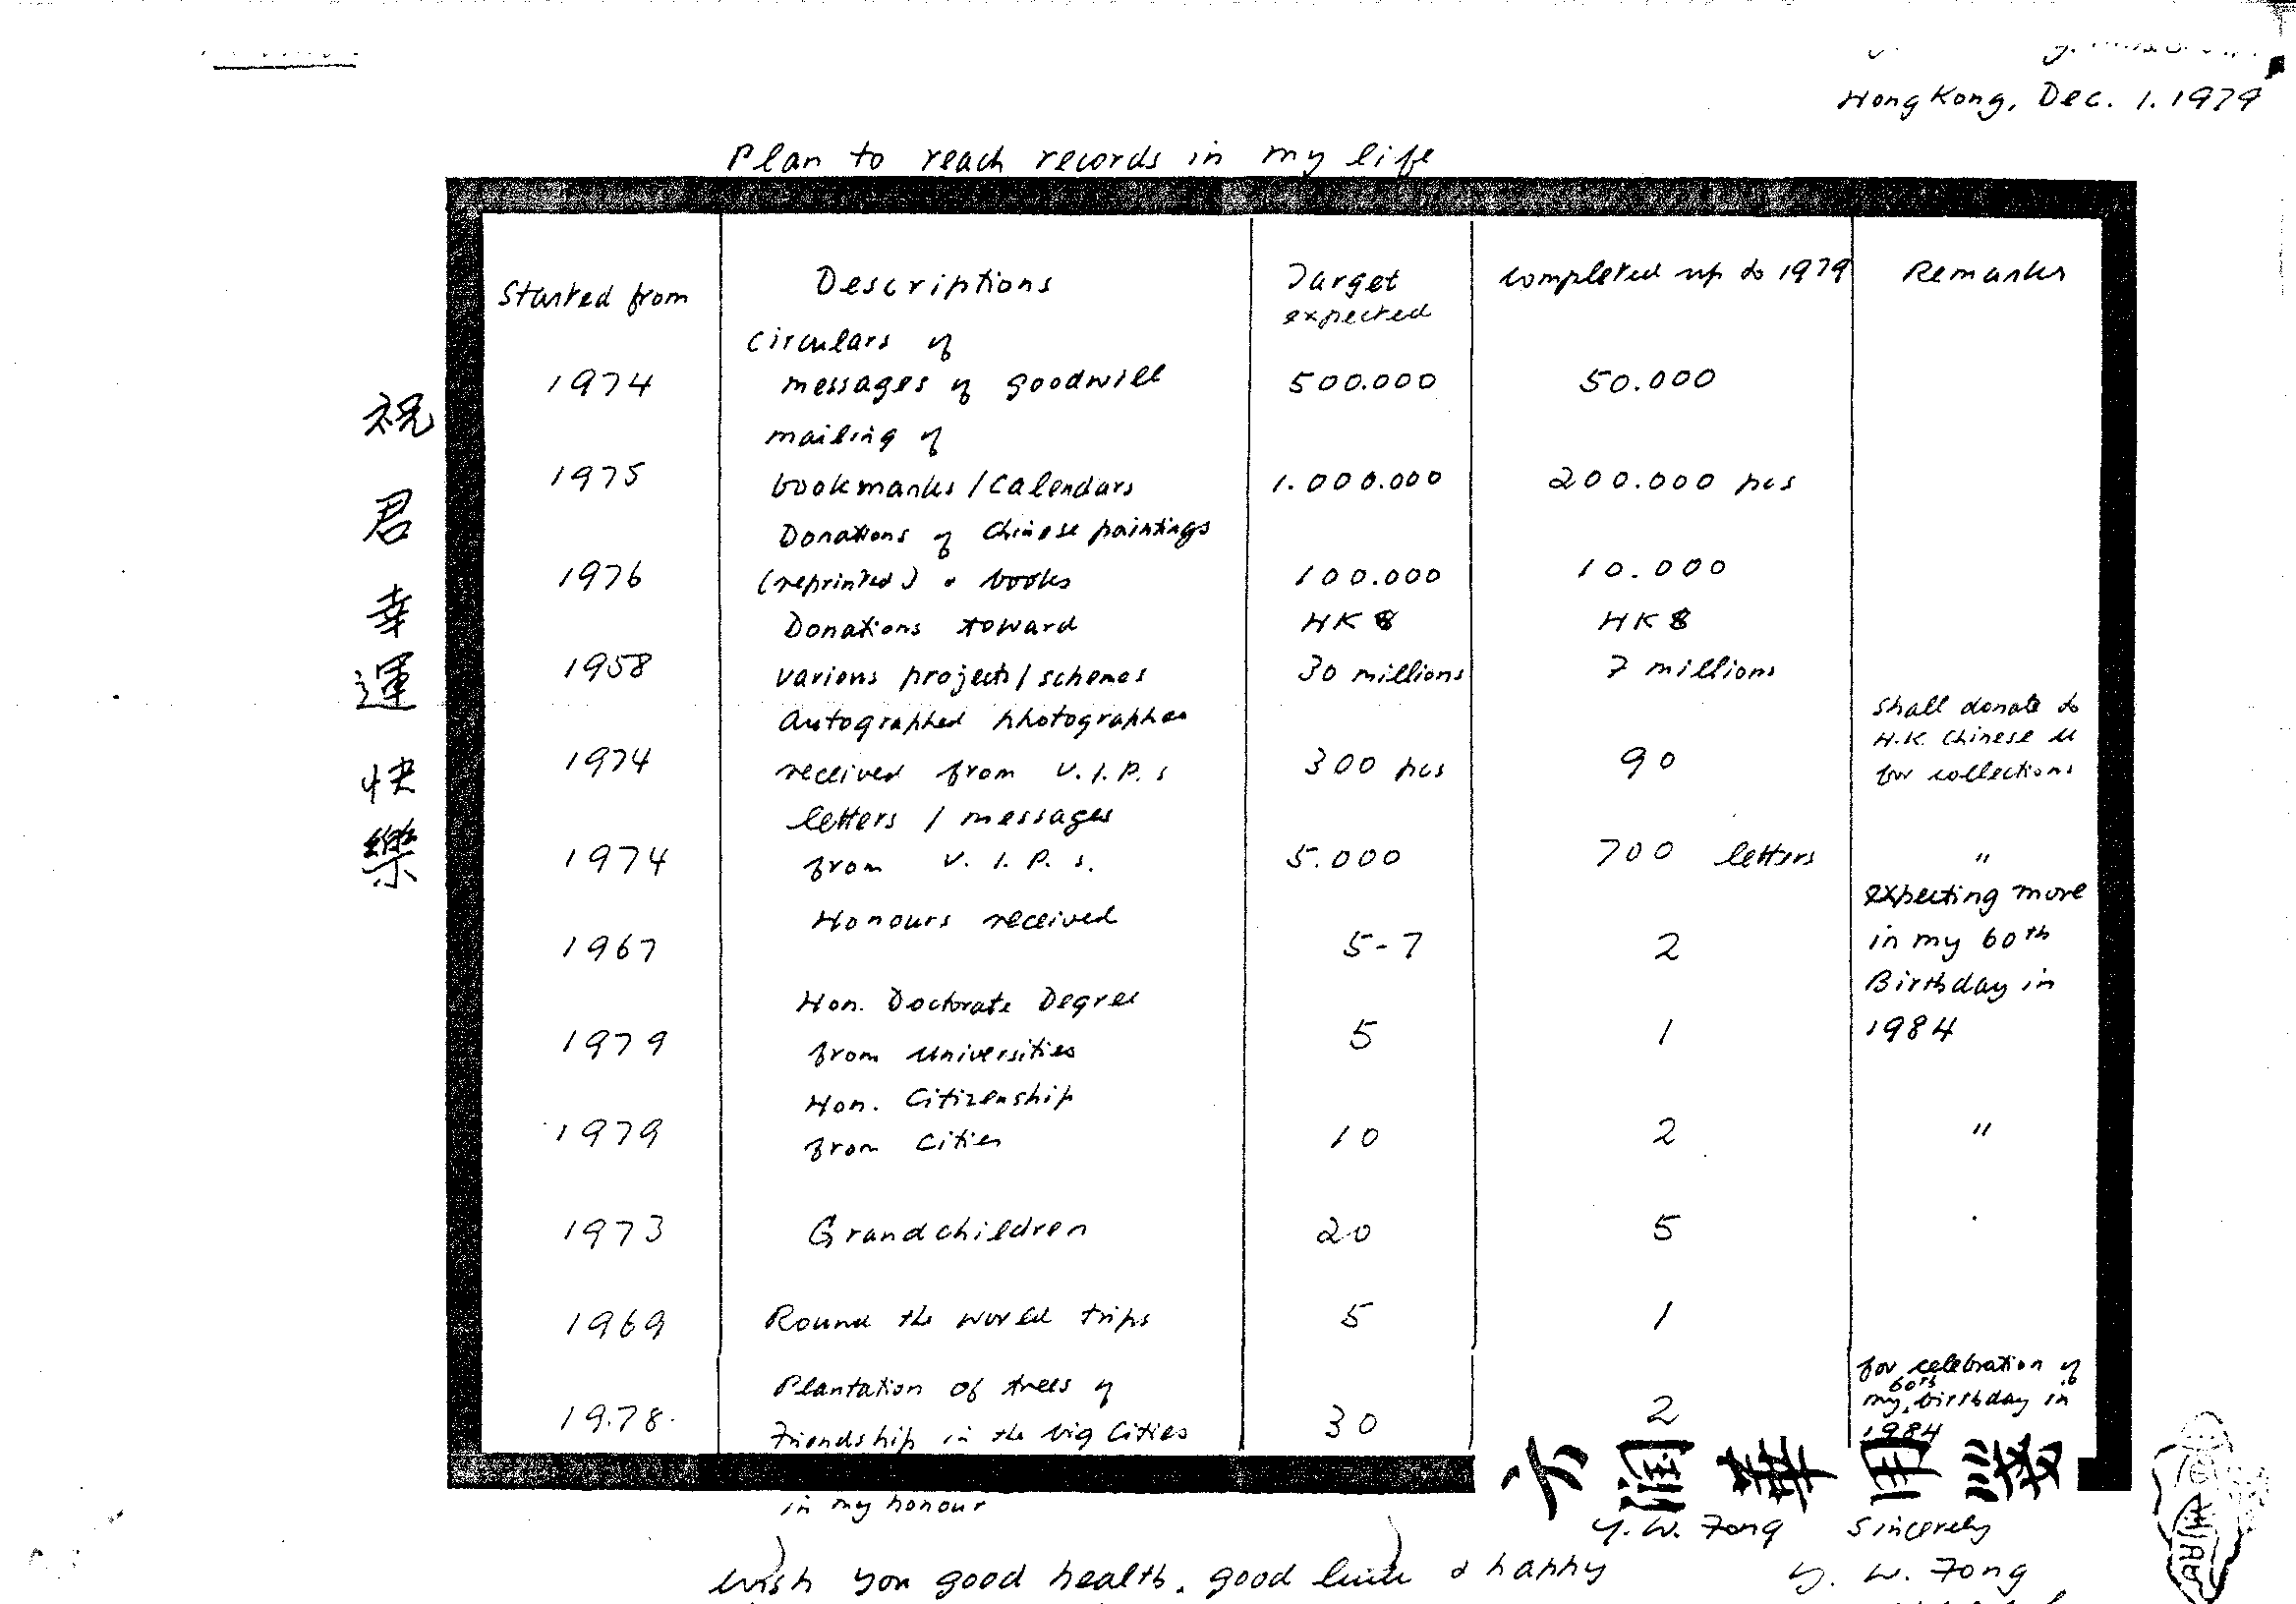 Hong Kong, Dec. 1. 1979
Plan to reach records in my life
Started from Descriptions Target expected completed up to 1979 Remarks
Circulars of
1974 messages of goodwill 500.000 50.000
mailing of
1975 bookmarks / Calendars 1.000.000 200.000 pcs
Donations of Chinese paintings
1976 (reprinted) & books 100.000 10.000
Donations toward HK$ HK$
1958 various projects / schemes 30 millions 7 millions
Autographed photographes shall donate to
1974 received from V.I.P.s 300 pcs 90 H.K. Chinese U
for collections
letters / messages
1974 from V.I.P.s. 5.000 700 letters "
Honours received expecting more
1967 5-7 2 in my 60th
Hon. Doctorate Degree Birthday in
1979 from Universities 5 1 1984
Hon. Citizenship
1979 from Cities 10 2 "
1973 Grandchildren 20 5
1969 Round the world trips 5 1
Plantation of trees of for celebration of
1978 Friendship in the big Cities 30 2 my 60th birthday in
1984
in my honour
祝君幸運快樂
Y. W. Fong Sincerely
wish you good health, good luck & happy
Y. W. Fong